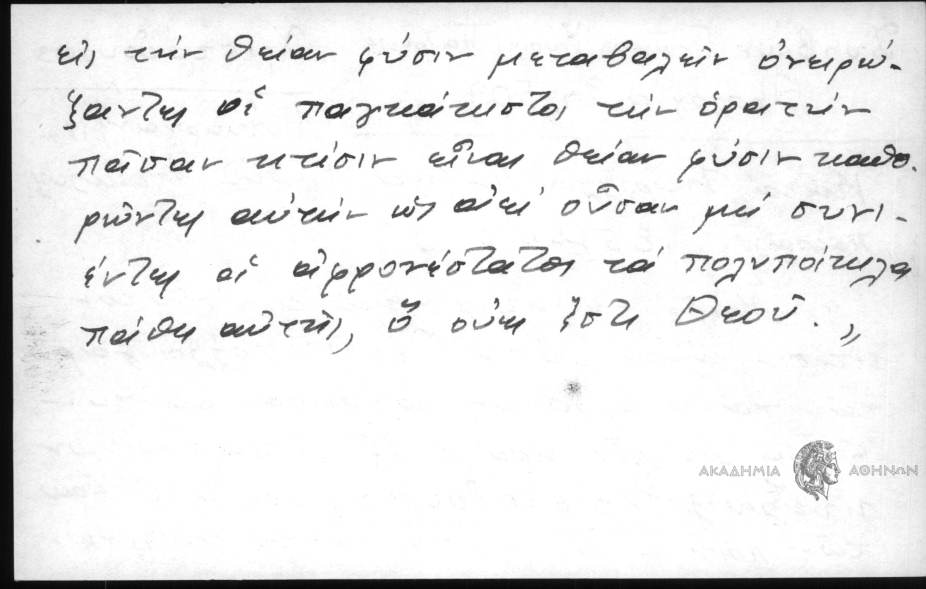 εἰς τὴν θείαν φύσιν μεταβαλεῖν ὀνειρώ-
ξαντες οἱ παγκάκιστοι τὴν ὁρατὴν
πᾶσαν κτίσιν εἶναι θείαν φύσιν καθο-
ρῶντες αὐτὴν ὡς ἀεὶ οὖσαν μὴ συνι-
έντες οἱ ἀφρονέστατοι τὰ πολυποίκιλα
πάθη αὐτῆς, ὃ οὐκ ἔστι Θεοῦ.„
ΑΚΑΔΗΜΙΑ ΑΘΗΝΩΝ